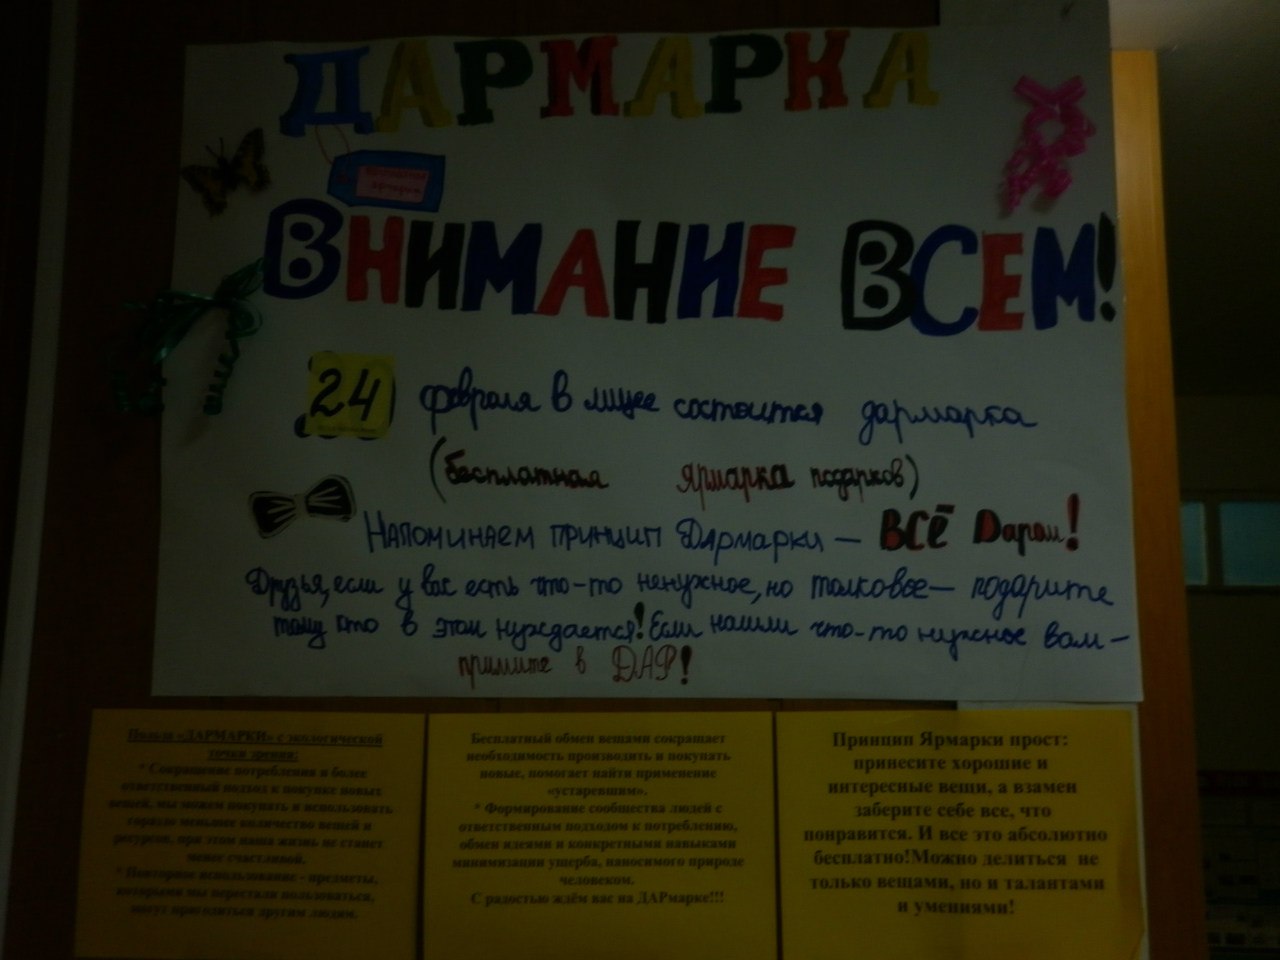 ДАРМАРКА
ВНИМАНИЕ ВСЕМ!
24 февраля в лицее состоится дармарка
(бесплатная ярмарка подарков)
Напоминаем принцип Дармарки — ВСЁ Даром!
Друзья, если у вас есть что-то ненужное, но толковое — подарите
тому кто в этом нуждается! Если нашли что-то нужное вам —
примите в ДАР!
Польза «ДАРМАРКИ» с экологической
точки зрения:
* Сокращение потребления и более
ответственный подход к покупке новых
вещей, мы можем покупать и использовать
гораздо меньшее количество вещей и
ресурсов, при этом наша жизнь не станет
менее счастливой.
* Повторное использование - предметы,
которыми мы перестали пользоваться,
могут пригодиться другим людям.
Бесплатный обмен вещами сокращает
необходимость производить и покупать
новые, помогает найти применение
«устаревшим».
* Формирование сообщества людей с
ответственным подходом к потреблению,
обмен идеями и конкретными навыками
минимизации ущерба, наносимого природе
человеком.
С радостью ждём вас на ДАРмарке!!!
Принцип Ярмарки прост:
принесите хорошие и
интересные вещи, а взамен
заберите себе все, что
понравится. И все это абсолютно
бесплатно!Можно делиться не
только вещами, но и талантами
и умениями!